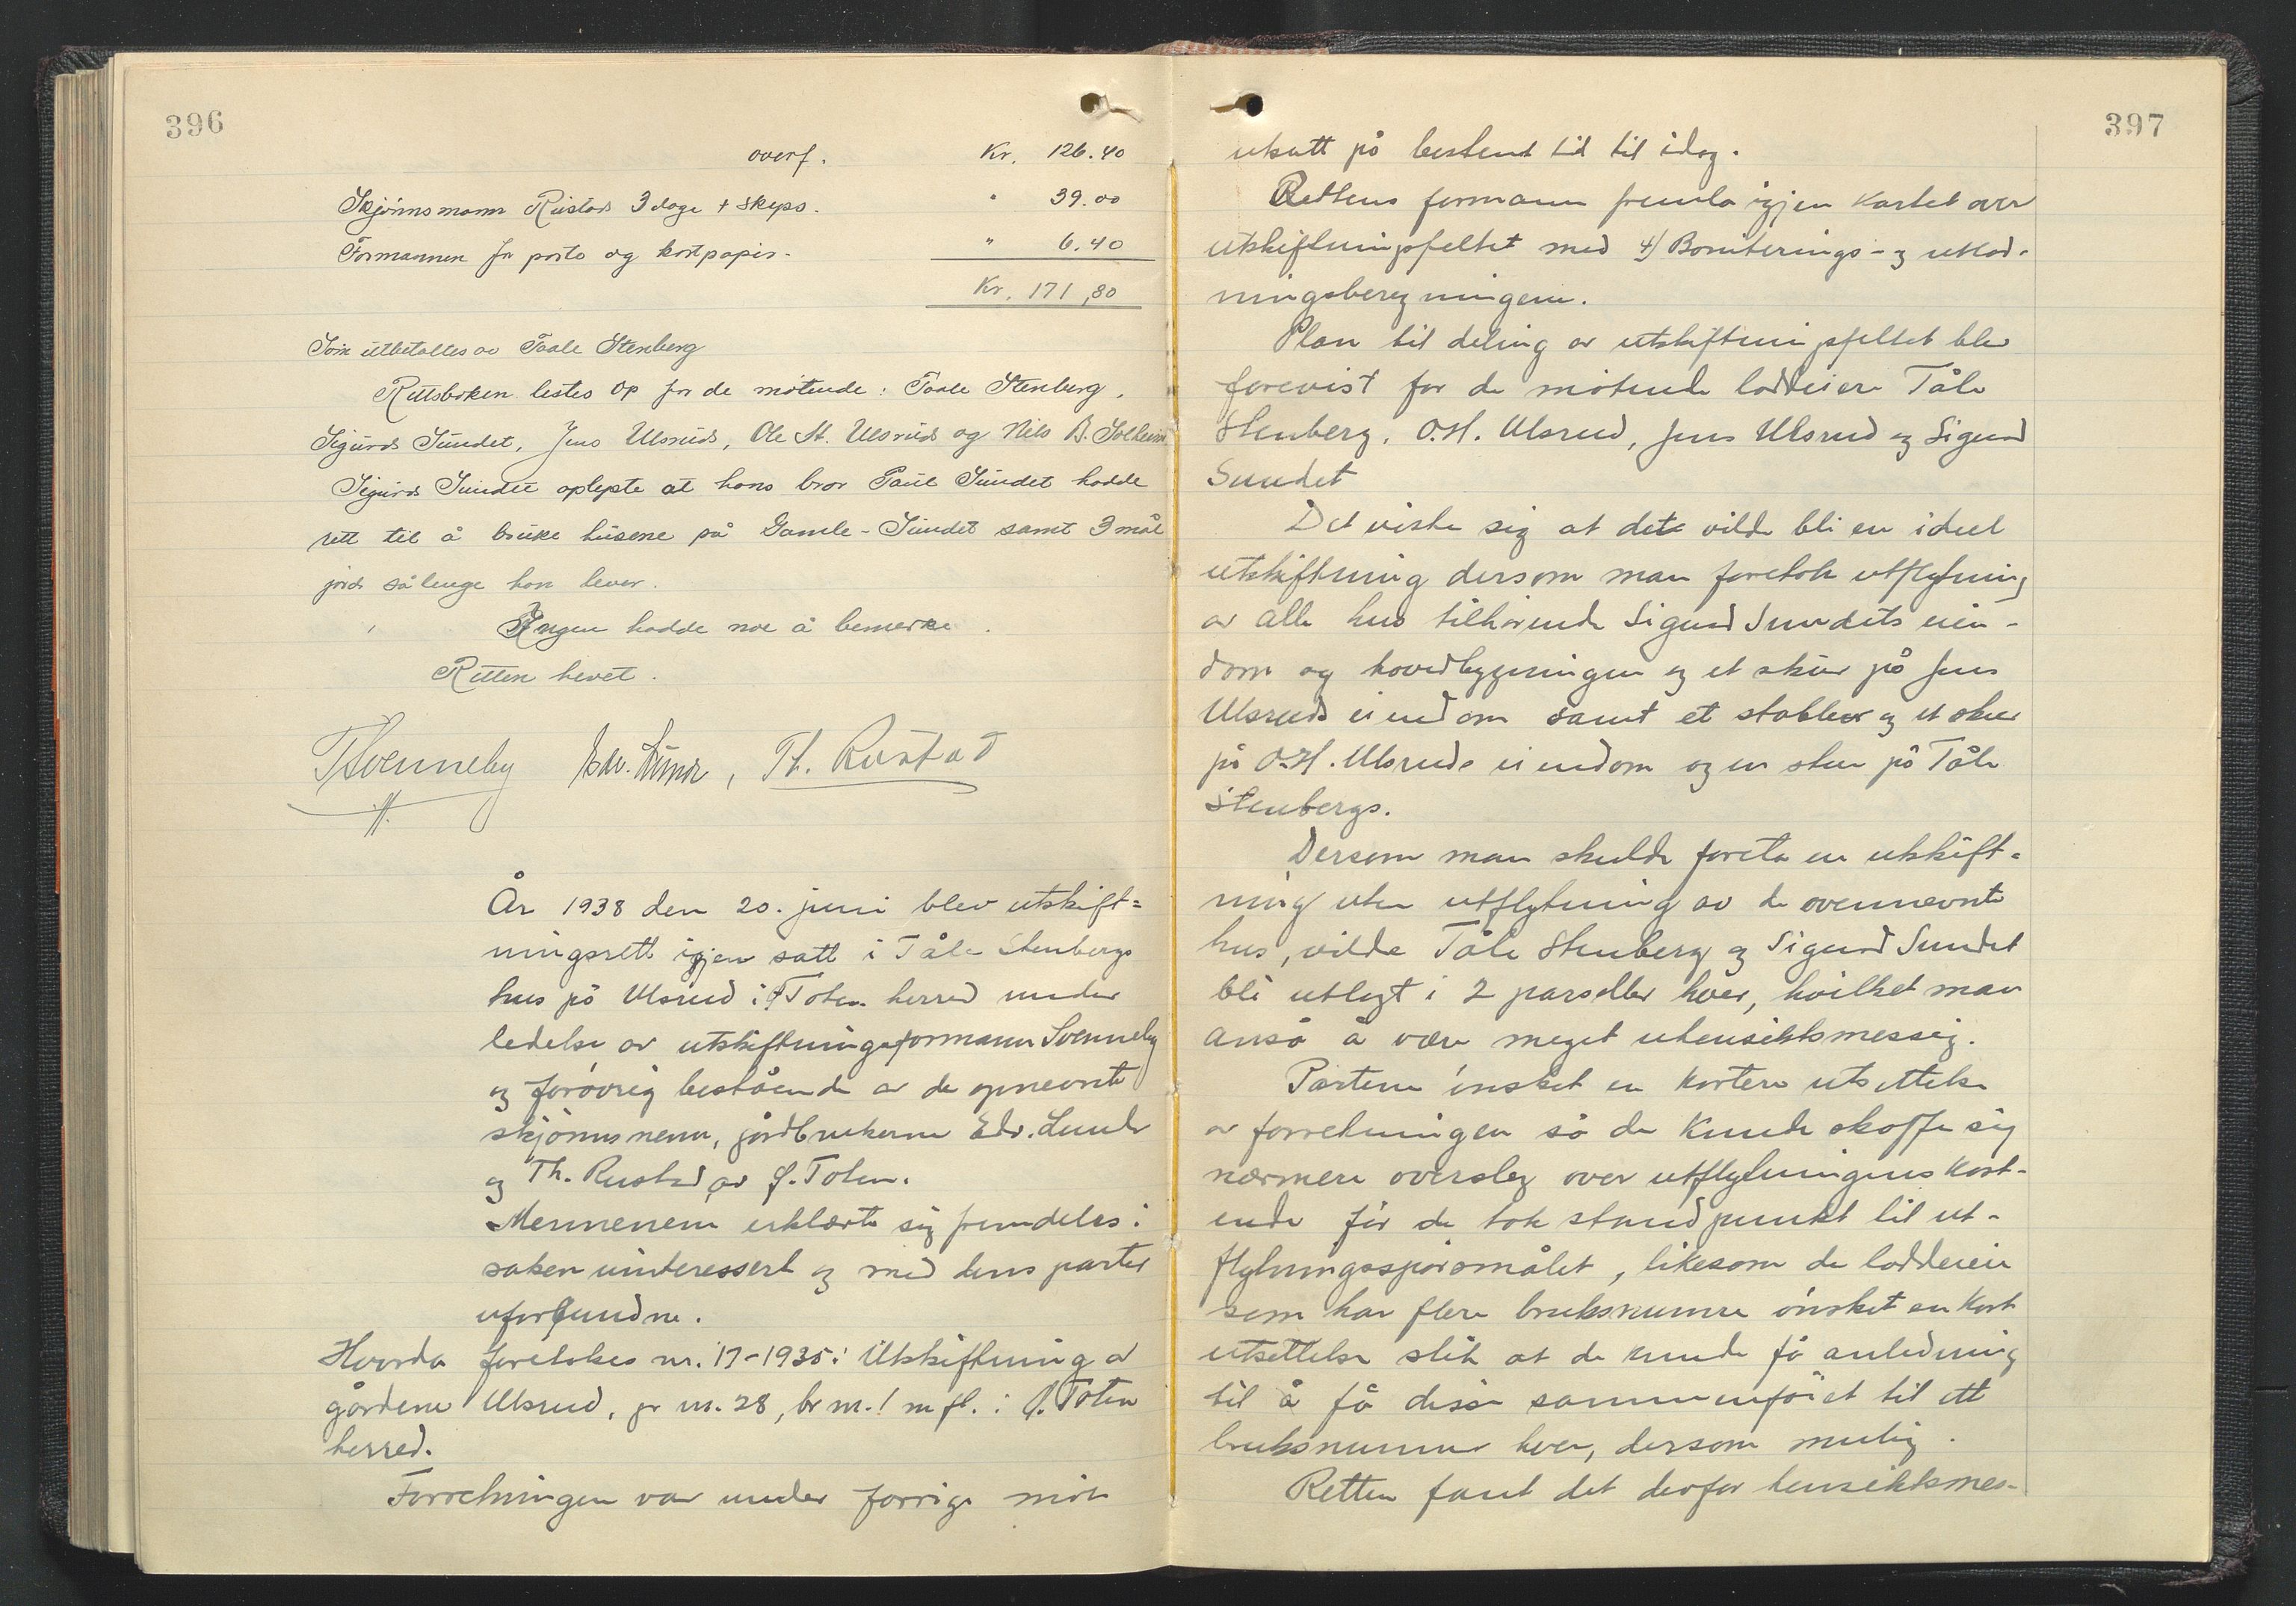 396
overf. Kr. 126.40
Skjønnsmann Rustad 3 dage + skyss. " 39.00
Formannen for porto og kartpapir. " 6.40
Kr. 171,80
Som utbetaltes av Taale Stenberg
Rettsboken lestes op for de møtende: Taale Stenberg,
Sigurd Sundet, Jens Ulsrud, Ole H. Ulsrud og Nils B. Solheim
Sigurd Sundet oplyste at hans bror Paul Sundet hadde
rett til å bruke husene på Gamle-Sundet samt 3 mål
jord så lenge han lever.
Ingen hadde noe å bemerke.
Retten hevet.
TSvenneby Edv. Lunde, Th. Rustad
År 1938 den 20. juni blev utskift=
ningsrett igjen satt i Tåle Stenbergs
hus på Ulsrud i Ø. Toten herred under
ledelse av utskiftningsformann Svenneby
og forøvrig bestående av de opnevnte
skjønnsmenn, jordbrukerne Edv. Lunde
og Th. Rustad av Ø. Toten.
Mennenem erklærte sig fremdeles i
saken uinteressert og med dens parter
uforbundne.
Hvorda foretokes nr. 17-1935: Utskiftning av
gårdene Ulsrud, gr nr. 28, br nr. 1 m fl. i Ø. Toten
herred.
Forretningen var under forrige møte
397
utsatt på bestemt tid til idag.
Rettens formann fremla igjen kartet over
utskiftningsfeltet med 4) Boniterings- og utlod-
ningsberegningene.
Plan til deling av utskiftningsfeltet blev
forevist for de møtende loddeiere Tåle
Stenberg, O.H. Ulsrud, Jens Ulsrud og Sigurd
Sundet
Det viste sig at det vilde bli en ideel
utskiftning dersom man foretok utflytning
av alle hus tilhørende Sigurd Sundets eien-
dom og hovedbygningen og et skur på Jens
Ulsruds eiendom samt et stabbur og et skur
på O.H. Ulsruds eiendom og en stue på Tåle
Stenbergs.
Dersom man skulde foreta en utskift-
ning uten utflytning av de ovennevnte
hus, vilde Tåle Stenberg og Sigurd Sundet
bli utlagt i 2 parseller hver, hvilket man
anså å være meget uhensiktsmessig.
Partene ønsket en kortere utsettelse
av forretningen så de kunde skaffe sig
nærmere overslag over utflytningens kost-
ende før de tok standpunkt til ut-
flytningsspørsmålet, likesom de loddeiere
som har flere bruksnumre ønsket en kort
utsettelse slik at de kunde få anledning
til å få disse sammenføiet til ett
bruksnummer hver, dersom mulig.
Retten fant det derfor hensiktsmes-